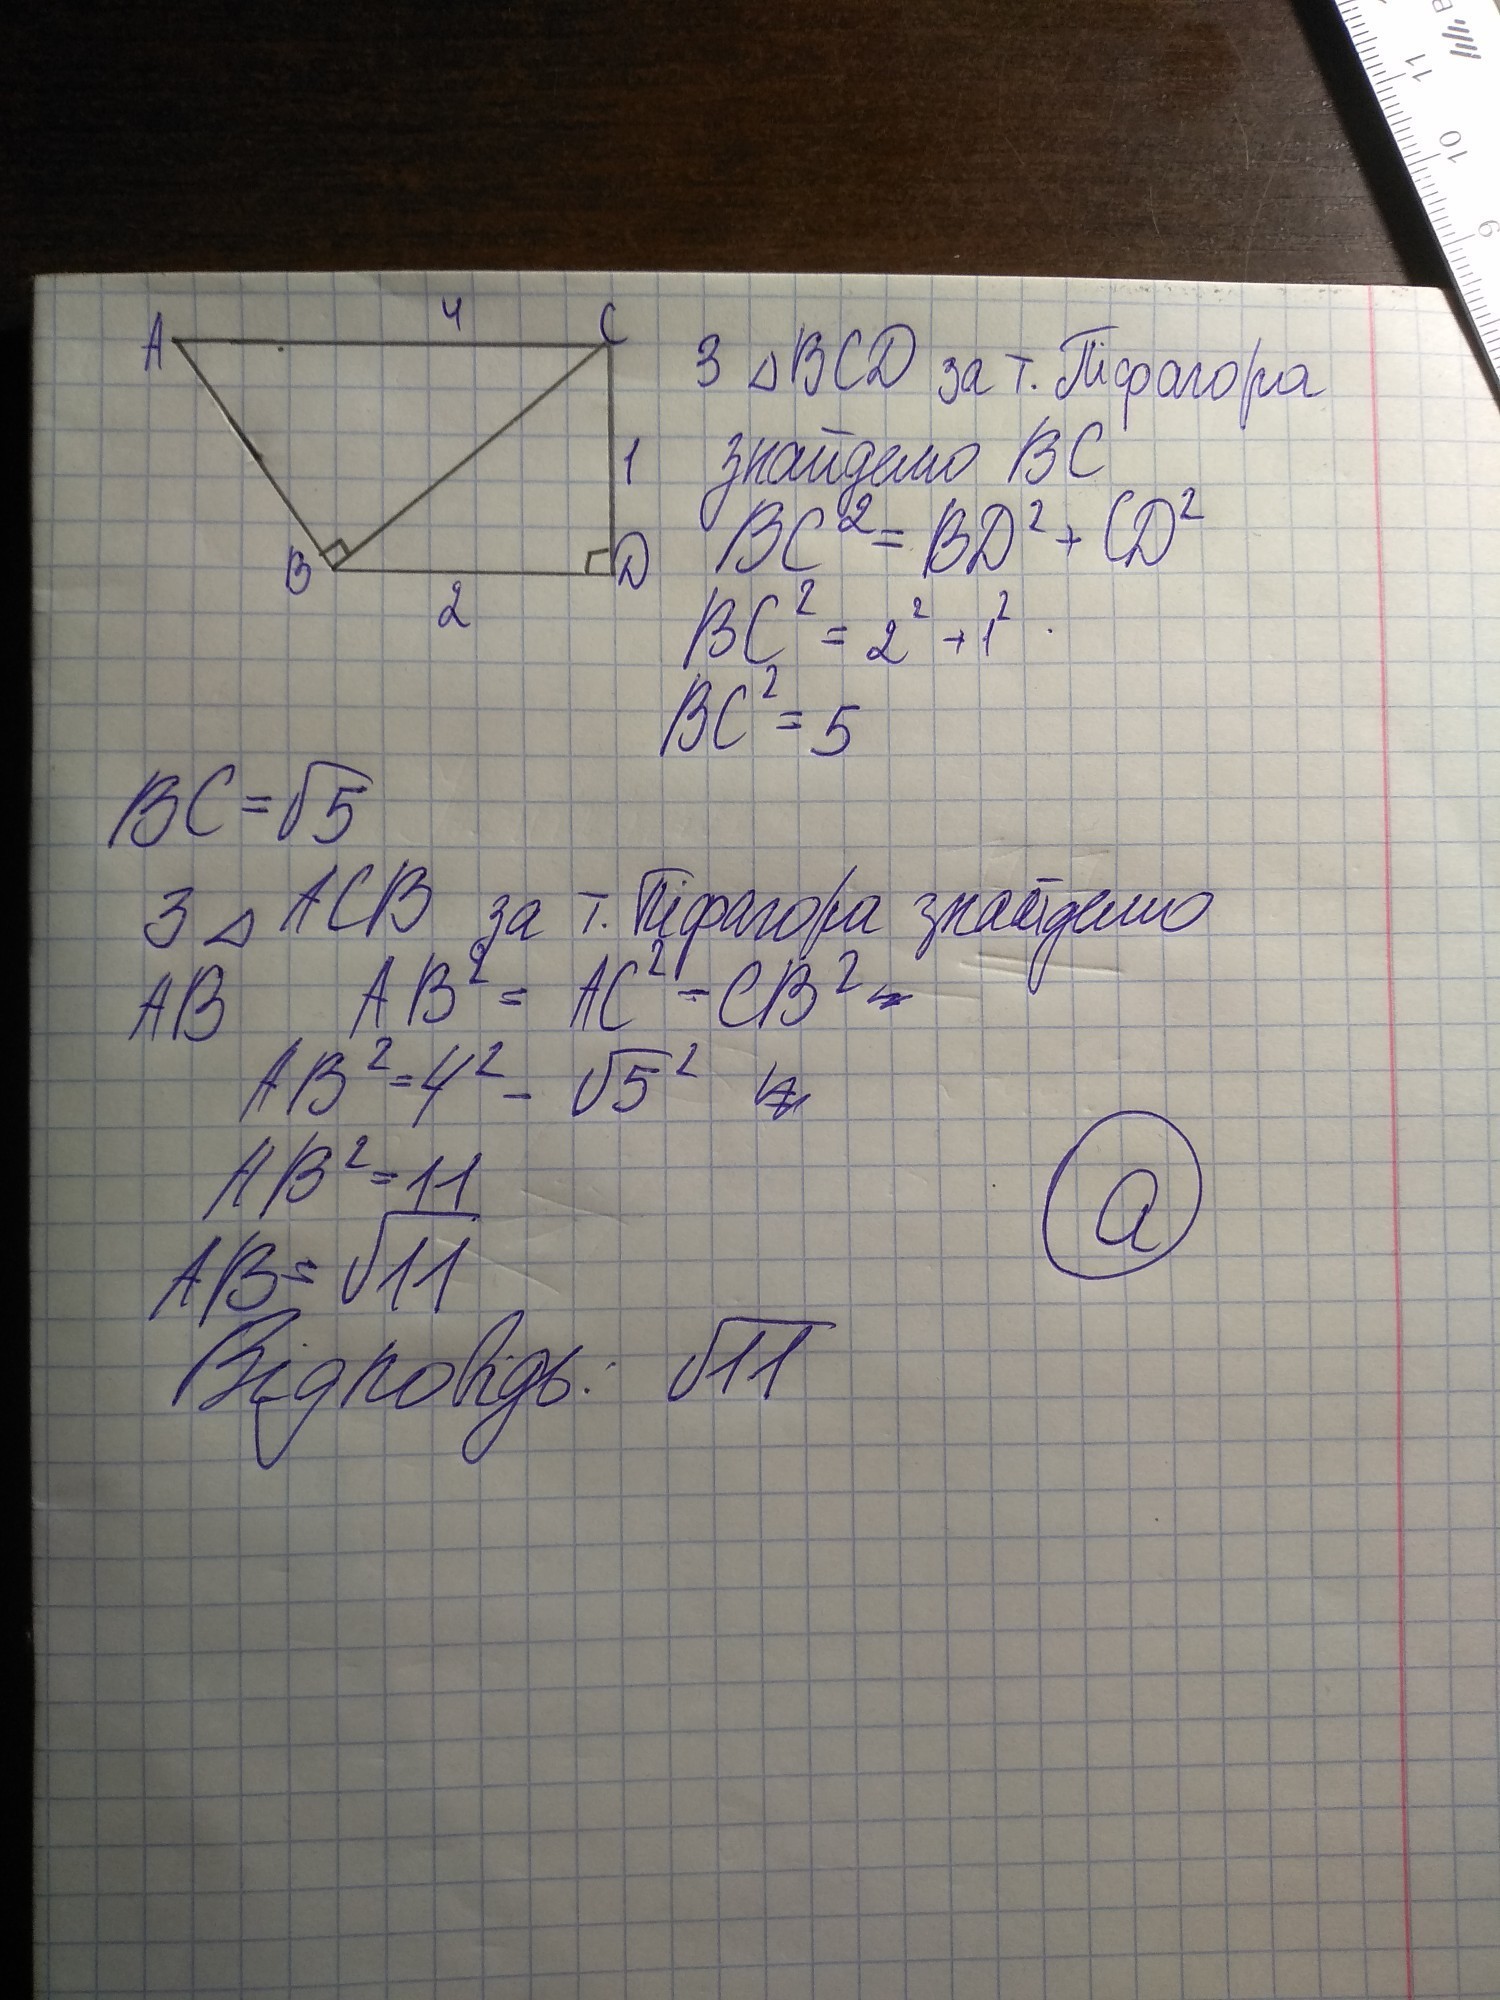 A 4 C
B 2 D
1
З △BCD за т. Піфагора
знайдемо BC
BC² = BD² + CD²
BC² = 2² + 1²
BC² = 5
BC = √5
З △ ACB за т. Піфагора знайдемо
AB AB² = AC² - CB²
AB² = 4² - √5²
AB² = 11
AB = √11
Відповідь: √11
a
11
10
9